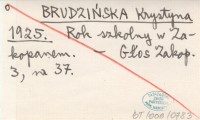 BRUDZIŃSKA Krystyna
1925. Rok szkolny w Za-
kopanem. – Głos Zakop.
3, nr 37.